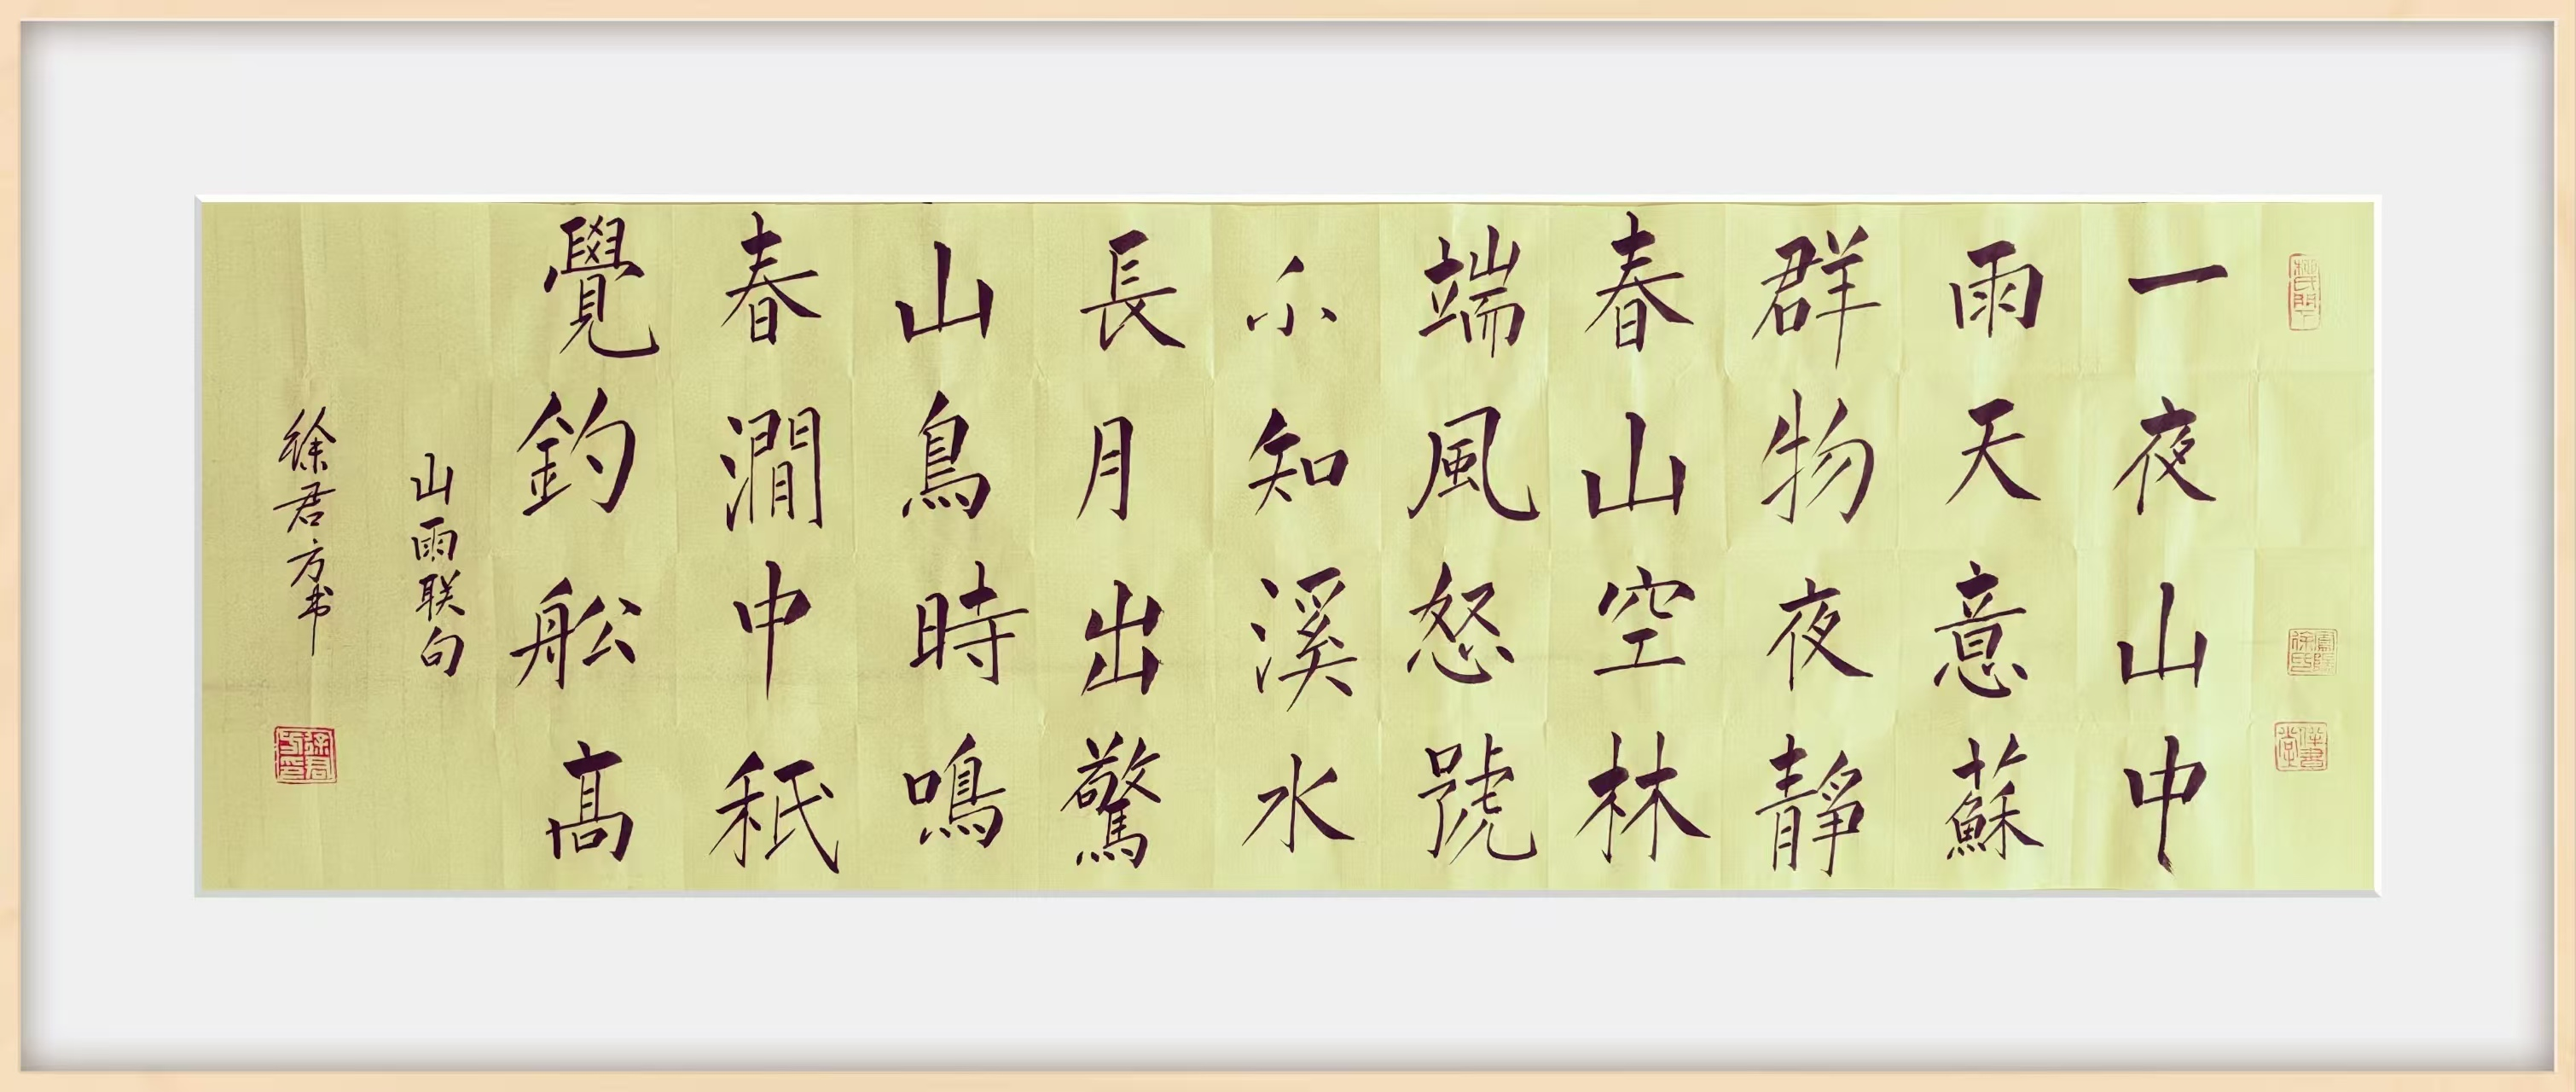 一夜山中
雨天意蘇
群物夜靜
春山空林
端風怒號
不知溪水
長月出驚
山鳥時鳴
春澗中秖
覺釣舩髙
山雨联句
徐君方书